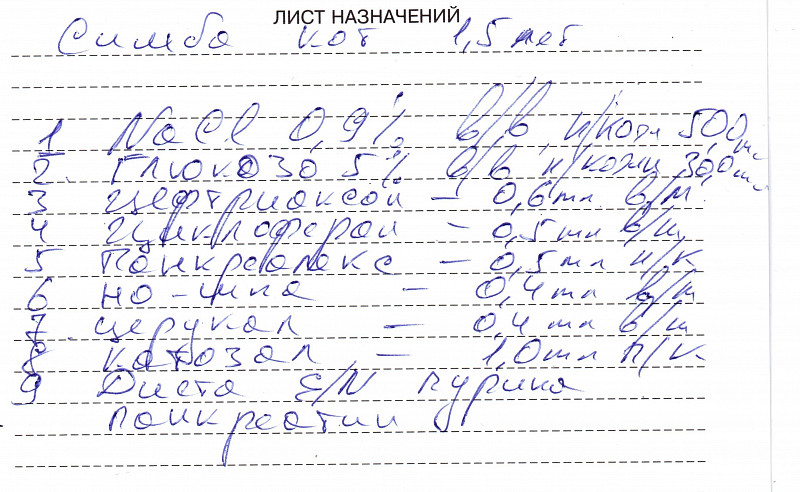 ЛИСТ НАЗНАЧЕНИЙ
Симба кот 1,5 лет
1 NaCl 0,9% в/в, п/кожн 50,0 мл
2. Глюкоза 5% в/в п/кожн 30,0 мл
3 Цефтриаксон – 0,6 мл в/м.
4 Циклоферон – 0,5 мл в/м
5 Панкреалекс – 0,5 мл п/к
6 Но-шпа – 0,4 мл в/м
7. церукал – 0,4 мл в/м
8 катозал – 1,0 мл п/к
9 Диета E/N пурина
панкреатин